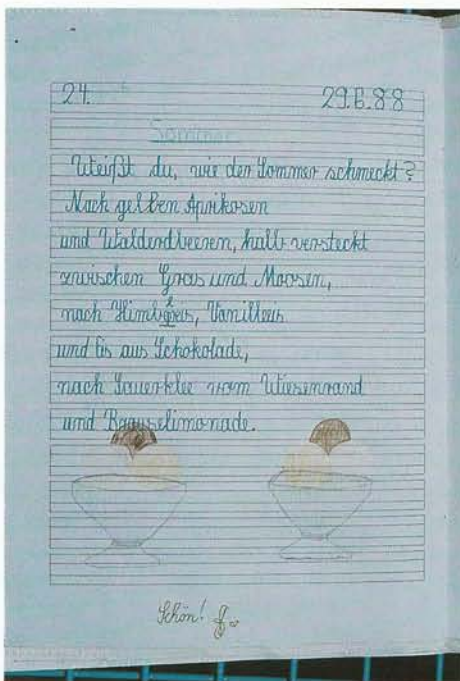 24. 29.6.88
Sommer
Weißt du, wie der Sommer schmeckt?
Nach gelben Aprikosen
und Walderdbeeren, halb versteckt
zwischen Gras und Moosen,
nach Himbeereis, Vanilleeis
und Eis aus Schokolade,
nach Sauerklee vom Wiesenrand
und Brauselimonade.
Schön!